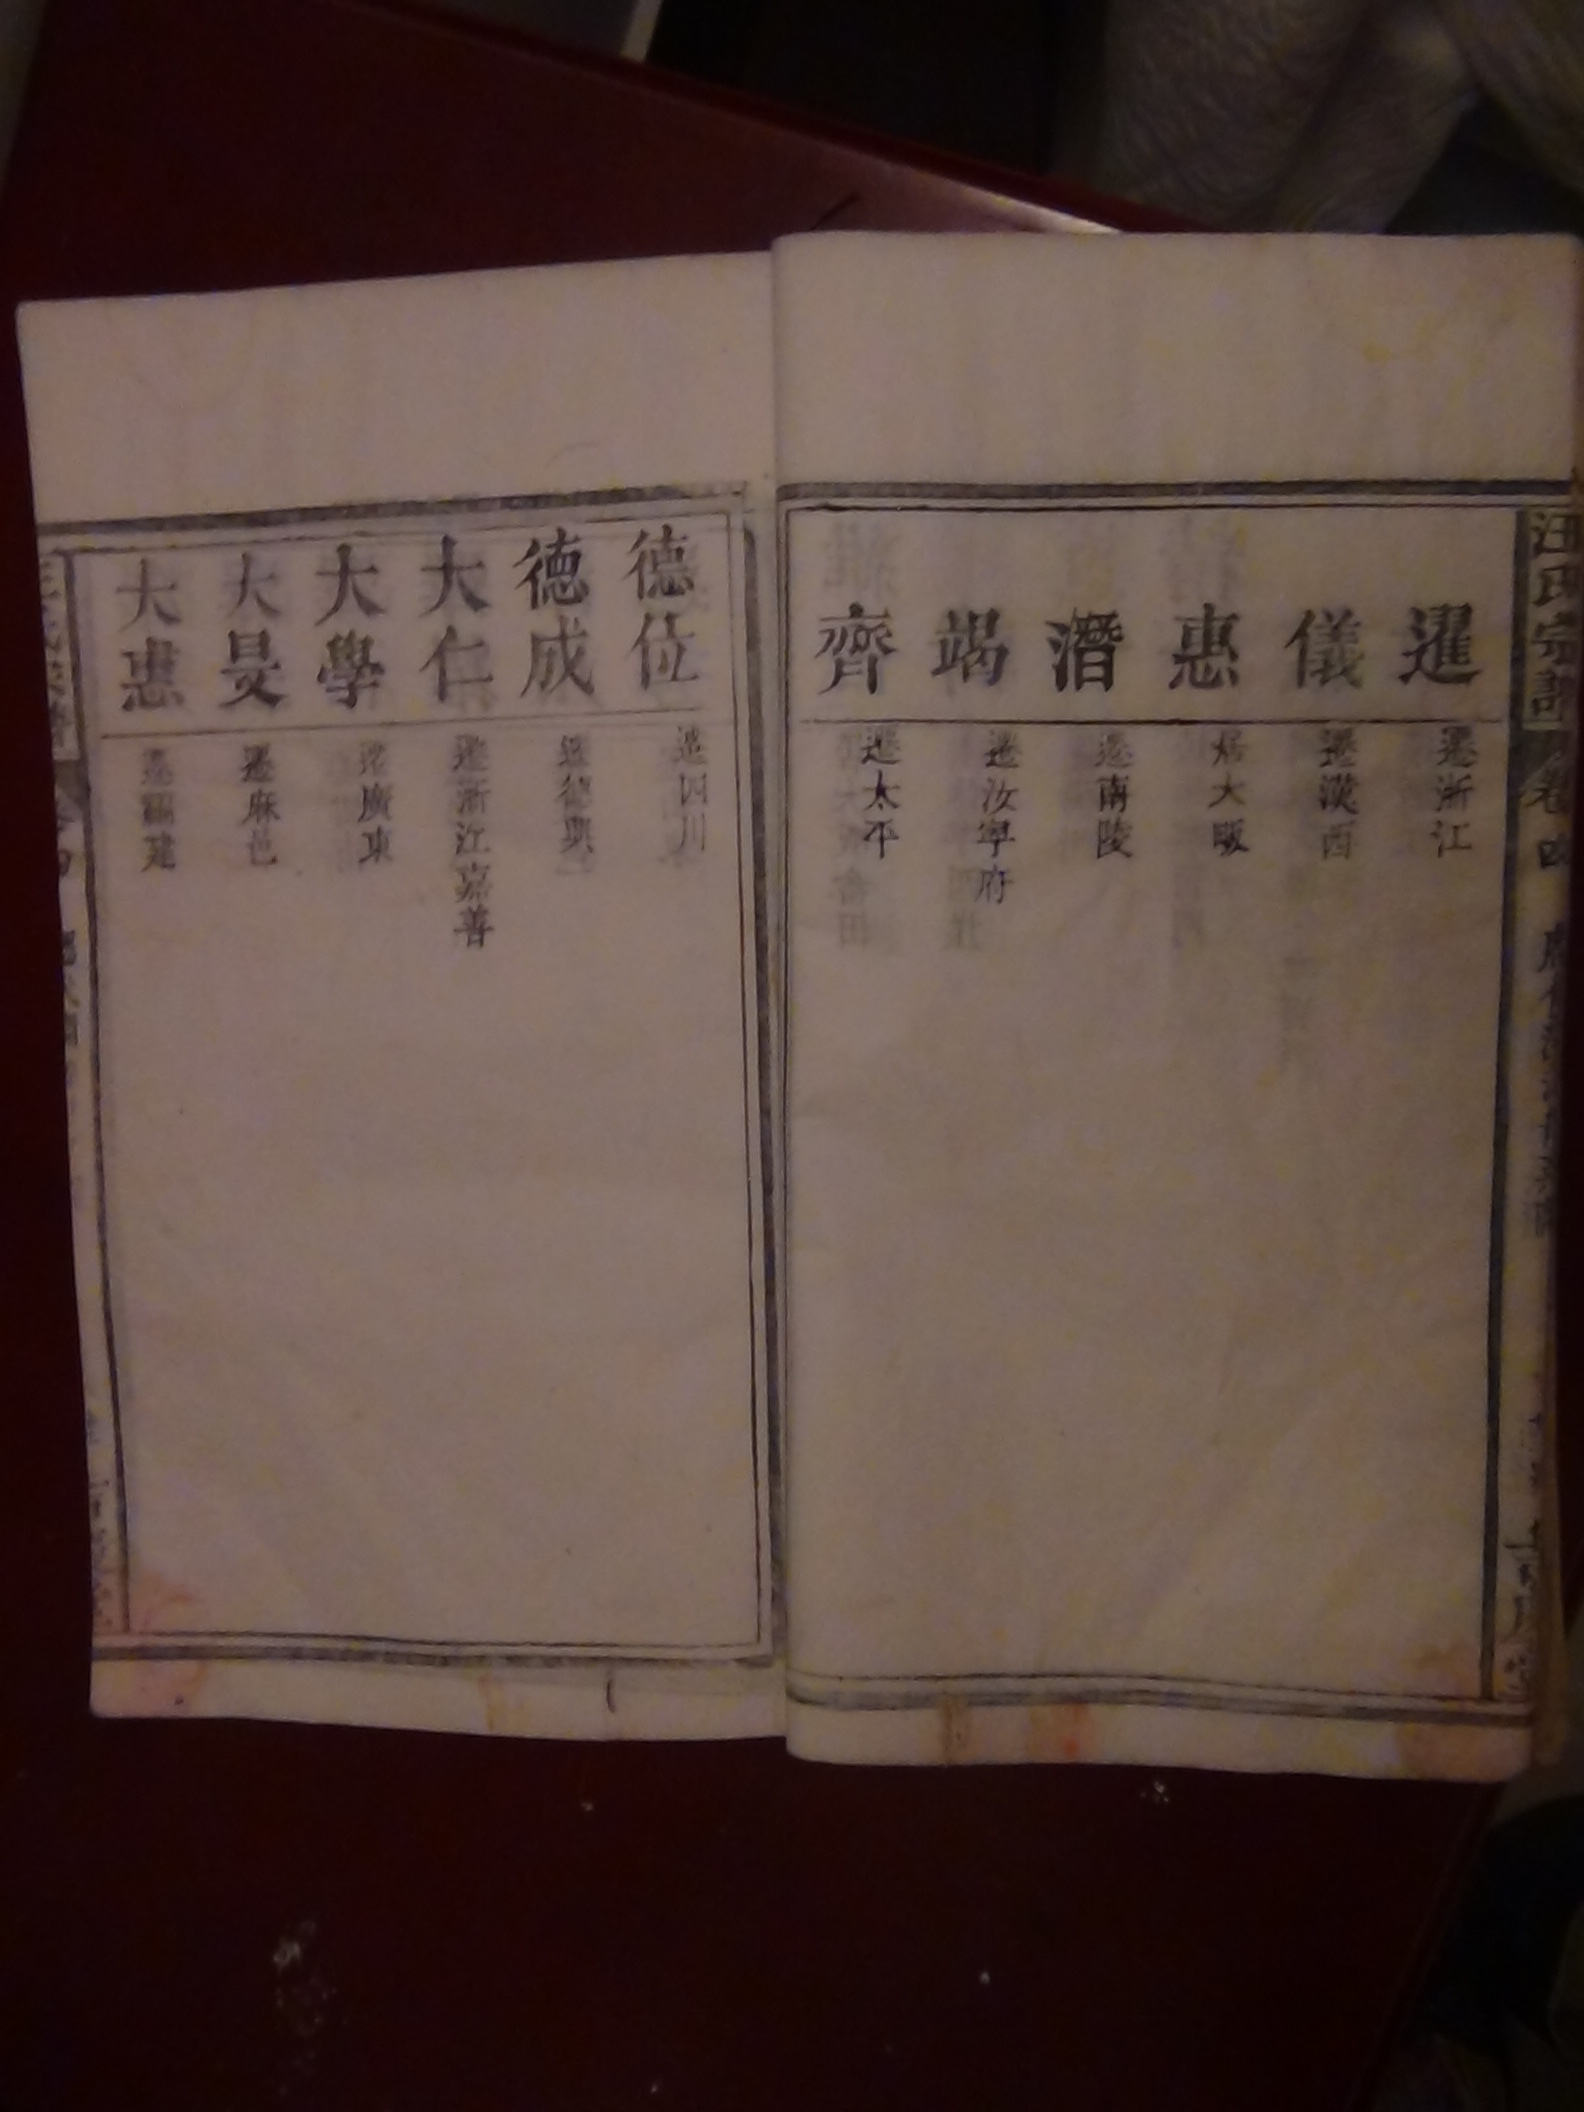 汪氏宗譜
卷四
暹
遷浙江
儀
遷漢西
惠
居大畈
潛
遷南陵
竭
遷汝寧府
齊
遷太平
德位
遷四川
德成
遷德興
大仁
遷浙江嘉善
大學
遷廣東
大旻
遷麻邑
大恵
遷福建